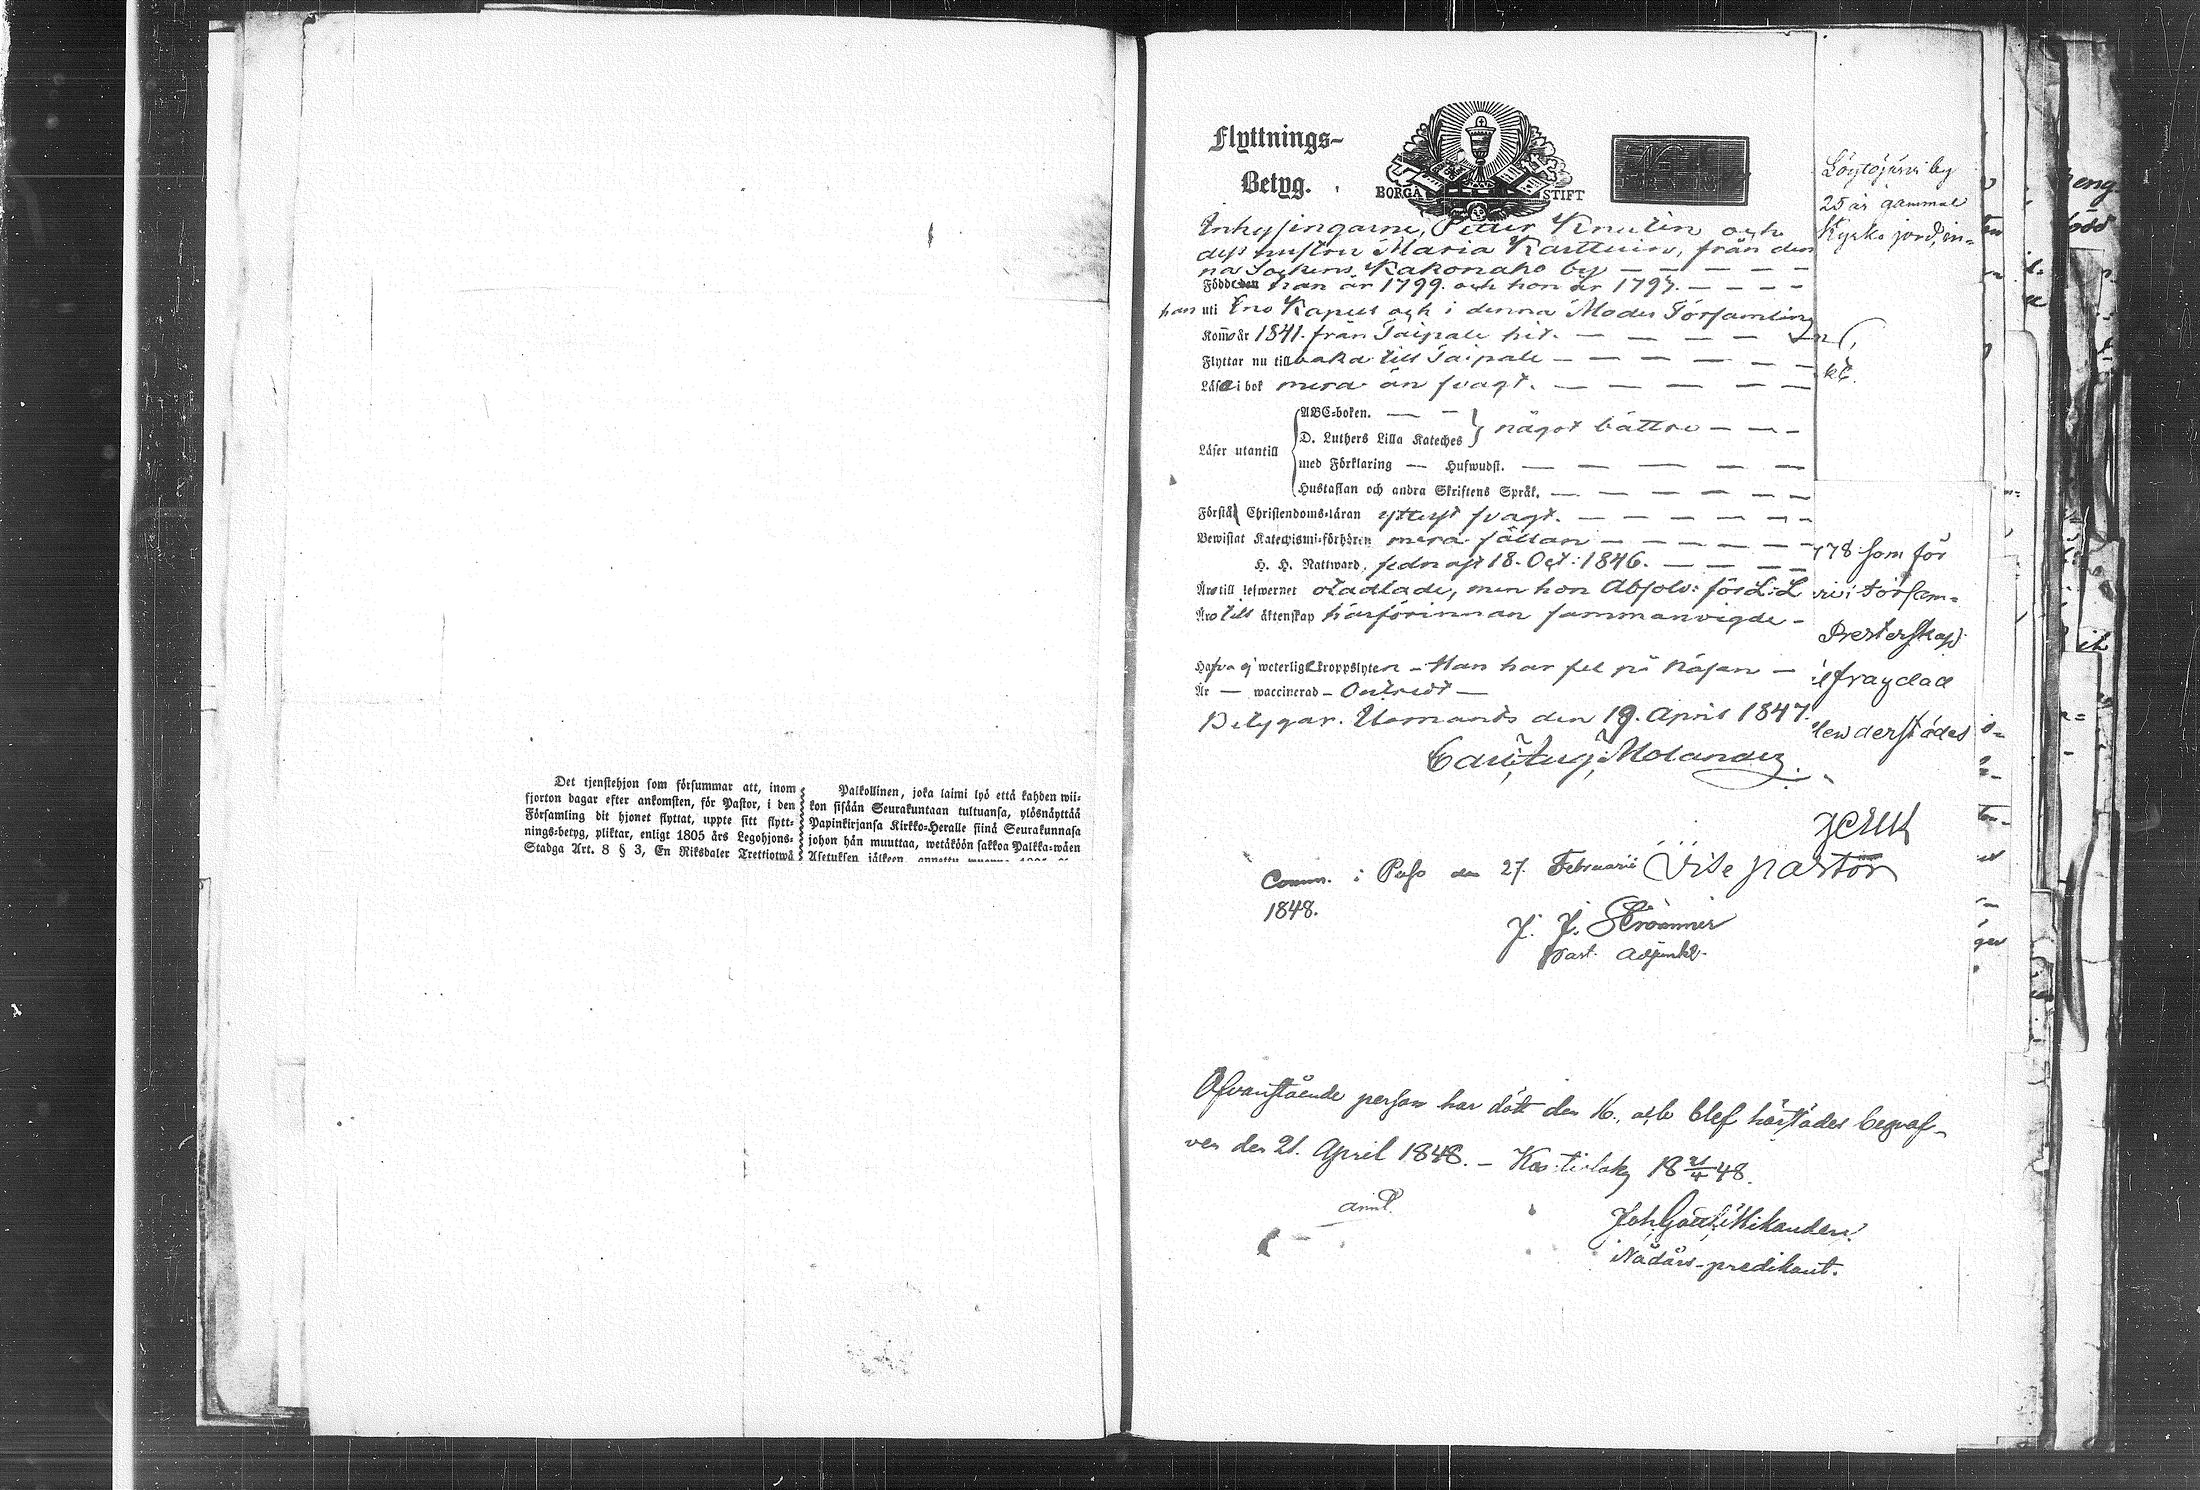 Det tjenstehjon som försummar att, inom
fjorton dagar efter ankomsten, för Pastor, i den
Församling dit hjonet flyttat, uppte sitt flytt-
nings-betyg, pliktar, enligt 1805 års Legohjons-
Stadga Art. 8 § 3, En Riksdaler Trettiotwå
Palkollinen, joka laimi lyö että kahden wii-
kon sisään Seurakuntaan tultuansa, ylösnäyttää
Papinkirjansa Kirkko-Heralle siinä Seurakunnasa
johon hän muuttaa, wetäköön sakkoa Palkka-wäen
Asetuksen jälkeen, annettu wuonna 1805
Flyttnings-
Betyg.
BORGÅ STIFT
Inhysingarne, Petter Knutin och
dess hustru Maria Karttuin, från den
na Sockens Kakonaho by
Födde han år 1799. och hon år 1797.
han uti Eno Kapell och i denna Moder Församling
Kom̄o år 1841. från Taipale hit.
Flyttar nu tillbaka till Taipale
Läsa i bok mera än svagt.
Läser utantill
ABC-boken.
D. Luthers Lilla Kateches
något bättre
med Förklaring — Hufwudst.
Hustaflan och andra Skriftens Språk.
Förstå Christendoms-läran ytterst svagt.
Bewistat Katechismi-förhören mera sällan
H. H. Nattward, sednast 18. Oct: 1846.
Äro till lefwernet otadlade, men hon Absolv: för L:L
Äro till äktenskap härförinnan sammanvigde
Hafva ej weterliga kroppslyten - Han har fel på Näsan
Är — waccinerad - Ovisst
Betygar. Ilomants den 19. April 1847.
Carl Aug. Molander
Comm. i Pelso den 27. Februarii
1848.
J. J. Strömmer
Past. Adjunkt.
Löytöjärvi by
25 år gammal
Kyrko jord, in-
178 som för
församl-
Presterskap
frayelad
derstädes
Vise pastor
Ofvanstående person har dött den 16., och blef härstädes begraf-
ven den 21. April 1848. - Kontiolaks 18 21/4 48.
Joh. Gottl. Mikander
Nådårs-predikant.